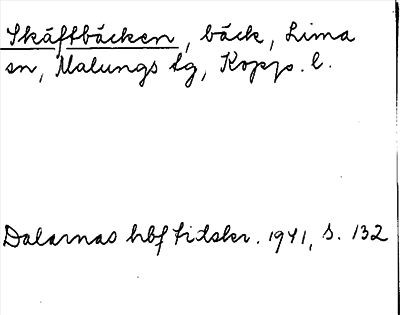 Skäftbäcken, bäck, Lima
sn, Malungs tg, Kopp. l.
Dalarnas hbf tidskr. 1941, s. 132